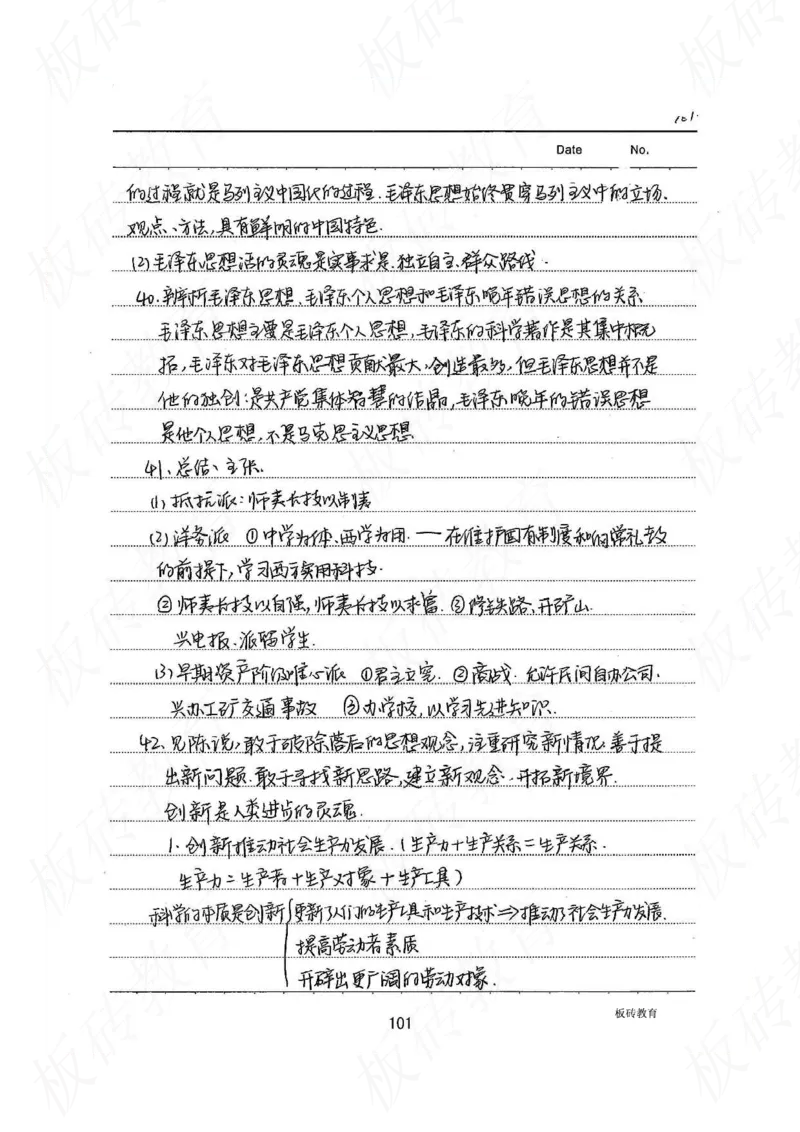 101.
Date No.
的过程就是马列主义中国化的过程.毛泽东思想始终贯穿马列主义中的立场、
观点、方法,具有鲜明的中国特色.
(2)毛泽东思想活的灵魂是实事求是.独立自主.群众路线.
40.辨析毛泽东思想、毛泽东个人思想和毛泽东晚年错误思想的关系
毛泽东思想主要是毛泽东个人思想,毛泽东的科学著作是其集中概
括,毛泽东对毛泽东思想贡献最大、创造最多,但毛泽东思想并不是
他的独创:是共产党集体智慧的结晶,毛泽东晚年的错误思想
是他个人思想,不是马克思主义思想
41、总结、主张.
(1)抵抗派:师夷长技以制夷
(2)洋务派 ①中学为体、西学为用.—在维护固有制度和纲常礼教
的前提下,学习西方实用科技.
②师夷长技以自强,师夷长技以求富.③修铁路、开矿山.
兴电报、派留学生.
(3)早期资产阶级维心派 ①君主立宪.②商战.允许民间自办公司.
兴办工矿交通事故 ③办学校,以学习先进知识.
42、见陈说,敢于破除落后的思想观念,注重研究新情况善于提
出新问题.敢于寻找新思路,建立新观念.开拓新境界.
创新是人类进步的灵魂.
1.创新推动社会生产力发展.(生产力+生产关系=生产关系.
生产力=生产者+生产对象+生产工具)
科学的本质是创新 更新了人们的生产工具和生产技术⇒推动了社会生产力发展.
提高劳动者素质
开辟出更广阔的劳动对象.
101
板砖教育